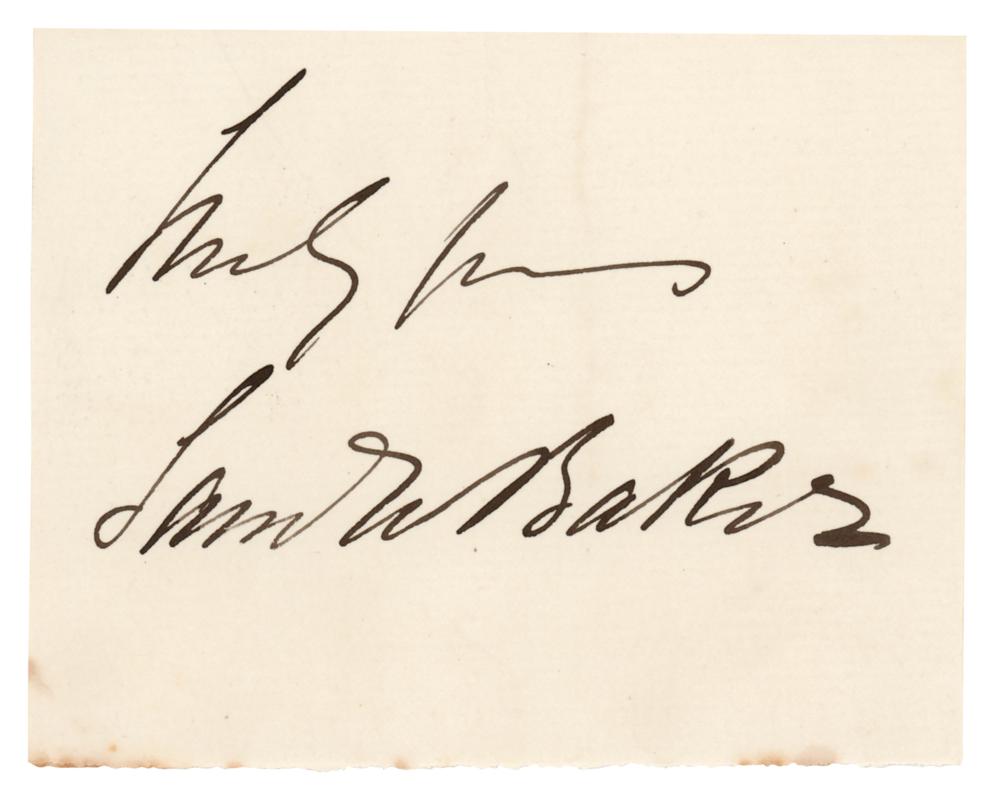 Truly yours
Saml W Baker